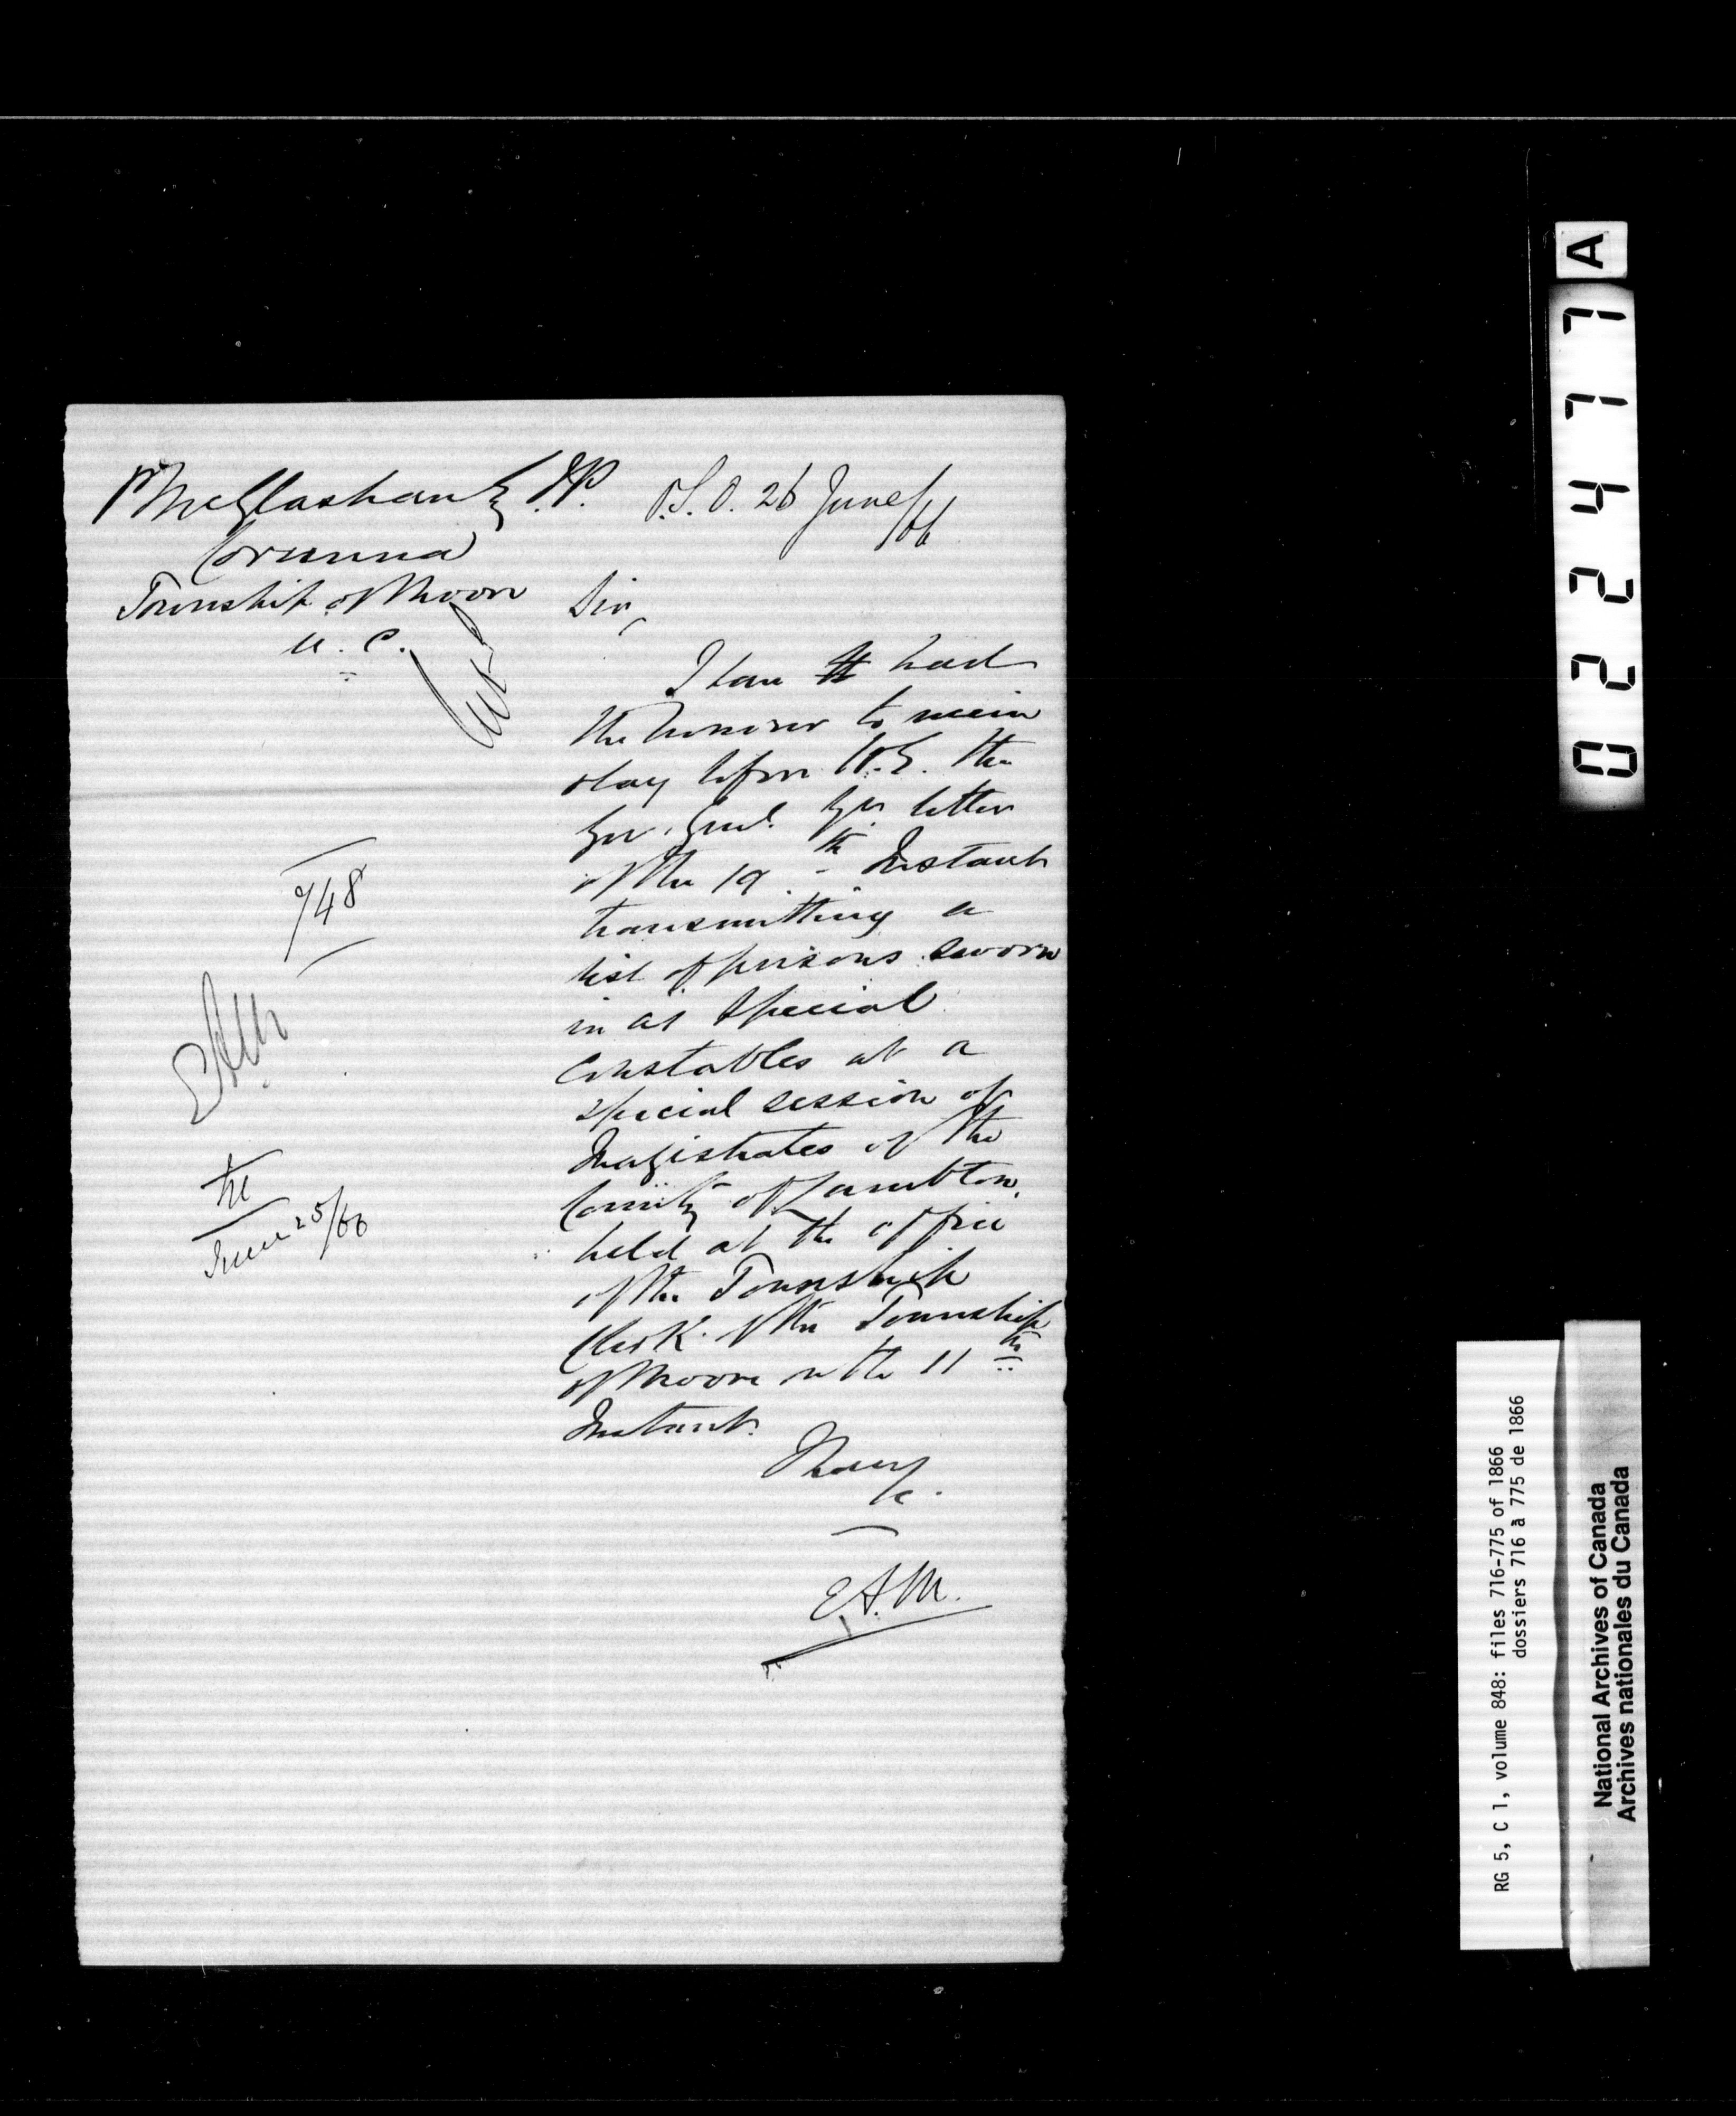 P McGlashan Esq. J.P.
Corunna
Township of Moore
U. C.
P.S.O. 26 June/66
Sir,
I have had
the honour to receive
& lay before H.E. the
Gov. Genl. yr. letter
of the 19th Instant
transmitting a
list of persons sworn
in as Special
Constables at a
special session of
Magistrates of the
County of Lambton,
held at the office
of the Township
Clerk of the Township
of Moore on the 11th
Instant.
I have
&c.
E.A.M.
748
EAM
June 25/66
022477 A
RG 5, C 1, volume 848: files 716-775 of 1866
dossiers 716 à 775 de 1866
National Archives of Canada
Archives nationales du Canada